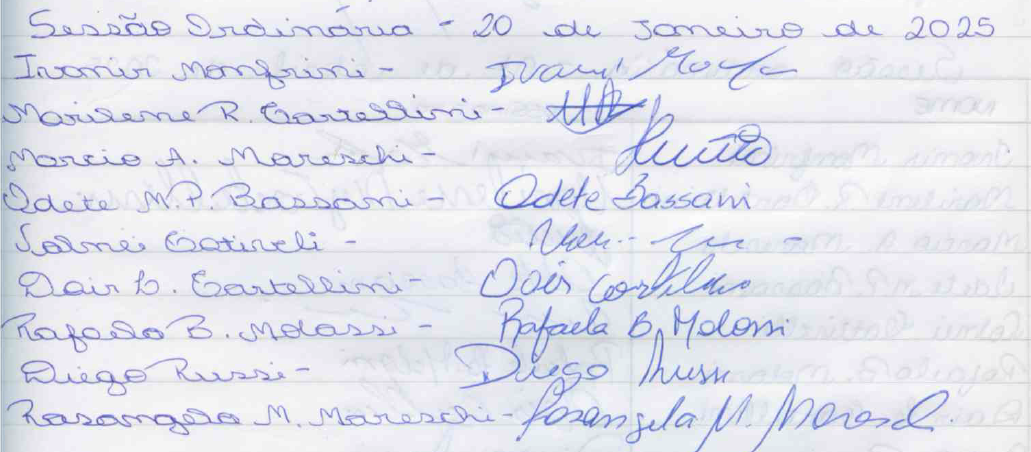 Sessão Ordinária - 20 de Janeiro de 2025
Ivanir Monfrini -
Marilene R. Cartellini -
Marcio A. Mareschi -
Odete M.P. Bassani - Odete Bassani
Dair L. Cartellini - Dair
Rafaela B. Molossi - Rafaela B. Molossi
Diego Russi - Diego Russi
Rosangela M. Mareschi - Rosangela M. Moresch